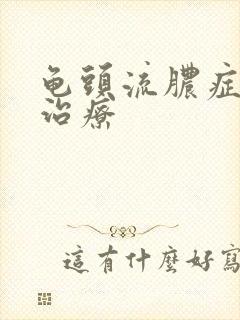 龟頭流膿症
治療
這有什麼好寫